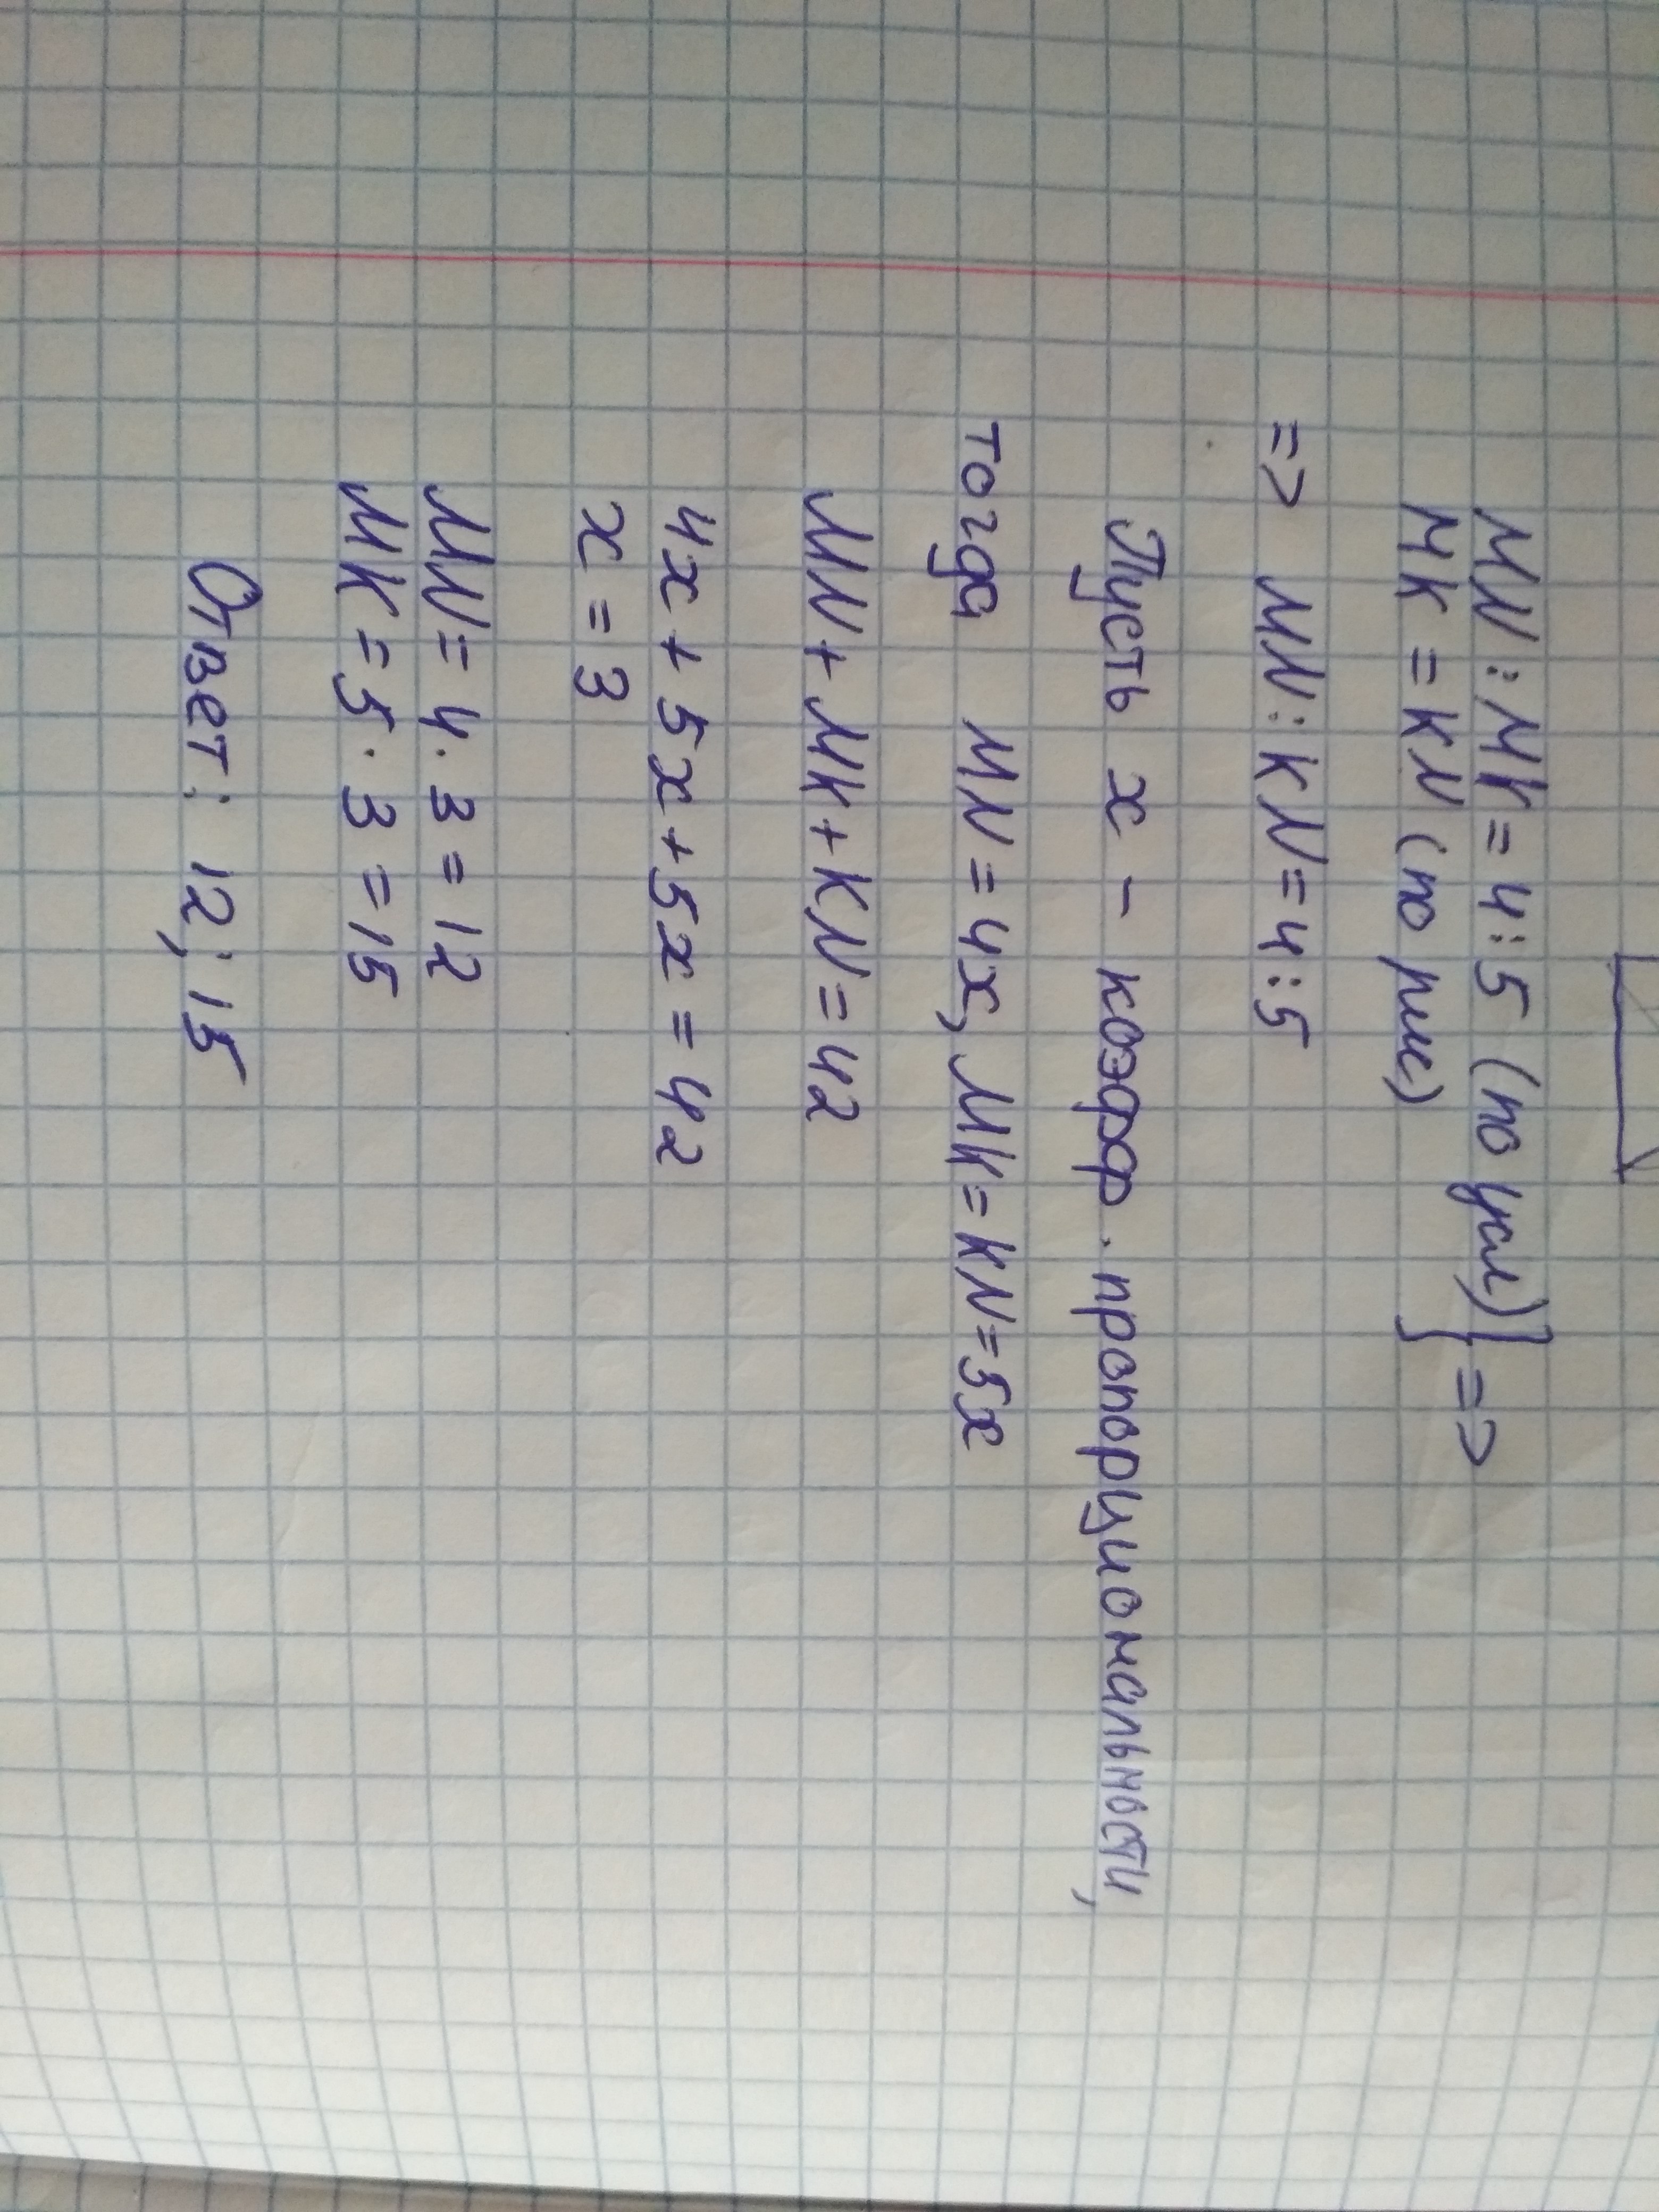 MN : MK = 4 : 5 (по усл) } =>
MK = KN (по рис)
=> MN : KN = 4 : 5
Пусть x – коэфф. пропорциональности,
тогда MN = 4x, MK = KN = 5x
MN + MK + KN = 42
4x + 5x + 5x = 42
x = 3
MN = 4 · 3 = 12
MK = 5 · 3 = 15
Ответ: 12; 15